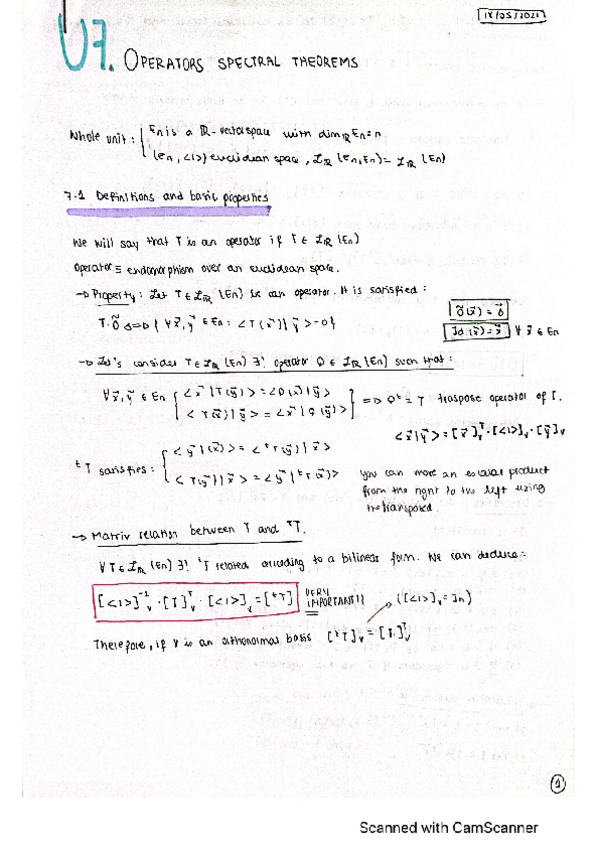 18/05/2021
U7. OPERATORS SPECTRAL THEOREMS
Whole unit: { En is a ℝ-vector space with dim_ℝ En=n
(En, <|>) euclidean space, ℒ_ℝ (En,En)= ℒ_ℝ (En)
7.1 Definitions and basic properties
We will say that T is an operator if T ∈ ℒ_ℝ (En)
Operator ≡ endomorphism over an euclidean space.
→ Property: Let T ∈ ℒ_ℝ (En) be an operator. It is satisfied:
{ ∀ x⃗, y⃗ ∈ En : < T(x⃗) | y⃗ > =0 }
Õ(x⃗) = 0⃗
Id (x⃗) = x⃗ ∀ x⃗ ∈ En
→ Let's consider T ∈ ℒ_ℝ (En) ∃! operator Q ∈ ℒ_ℝ (En) such that:
∀ x⃗, y⃗ ∈ En { < x⃗ | T(y⃗) > = < Q(x⃗) | y⃗ >
< T(x⃗) | y⃗ > = < x⃗ | Q(y⃗) > }
traspose operator of T.
< x⃗ | y⃗ > = [x⃗]ᵀ_v · [<|>]_v · [y⃗]_v
ᵗT satisfies: { < y⃗ | T(x⃗) > = < ᵗT(y⃗) | x⃗ >
< T(y⃗) | x⃗ > = < y⃗ | ᵗT(x⃗) >
you can move an escalar product
from the right to the left using
the transposed.
→ Matrix relation between T and ᵗT.
∀ T ∈ ℒ_ℝ (En) ∃! ᵗT related according to a bilinear form. We can deduce:
[<|>]⁻¹_v · [T]ᵀ_v · [<|>]_v = [ᵗT] VERY
IMPORTANT!! ([<|>]_v = In)
Therefore, if V is an orthonormal basis [ᵗT]_v = [T]ᵀ_v
1
Scanned with CamScanner